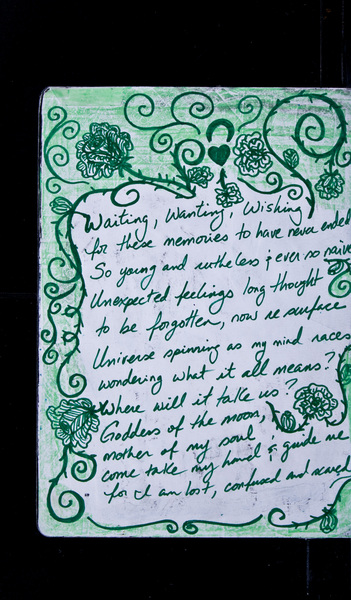 Waiting, Wanting, Wishing
for these memories to have never ended
So young and rutheless & ever so naive
Unexpected feelings long thought
to be forgotten, now re surface
Universe spinning as my mind races
wondering what it all means?
Where will it take us?
Goddess of the moon,
mother of my soul
come take my hand & guide me
for I am lost, confused and scared